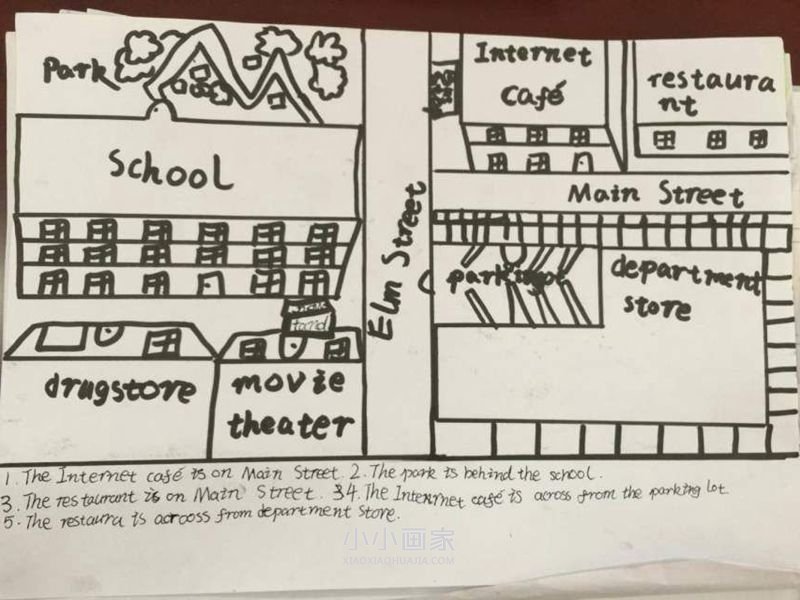 Park
Internet
Café
restaura
nt
School
Main Street
Elm Street
department
store
drugstore
movie
theater
1. The Internet café is on Main Street. 2. The park is behind the school.
3. The restaurant is on Main Street. 34. The Internet café is across from the parking lot.
5. The restaura is acrooss from department Store.
小小画家
XIAOXIAOHUAJIA.COM